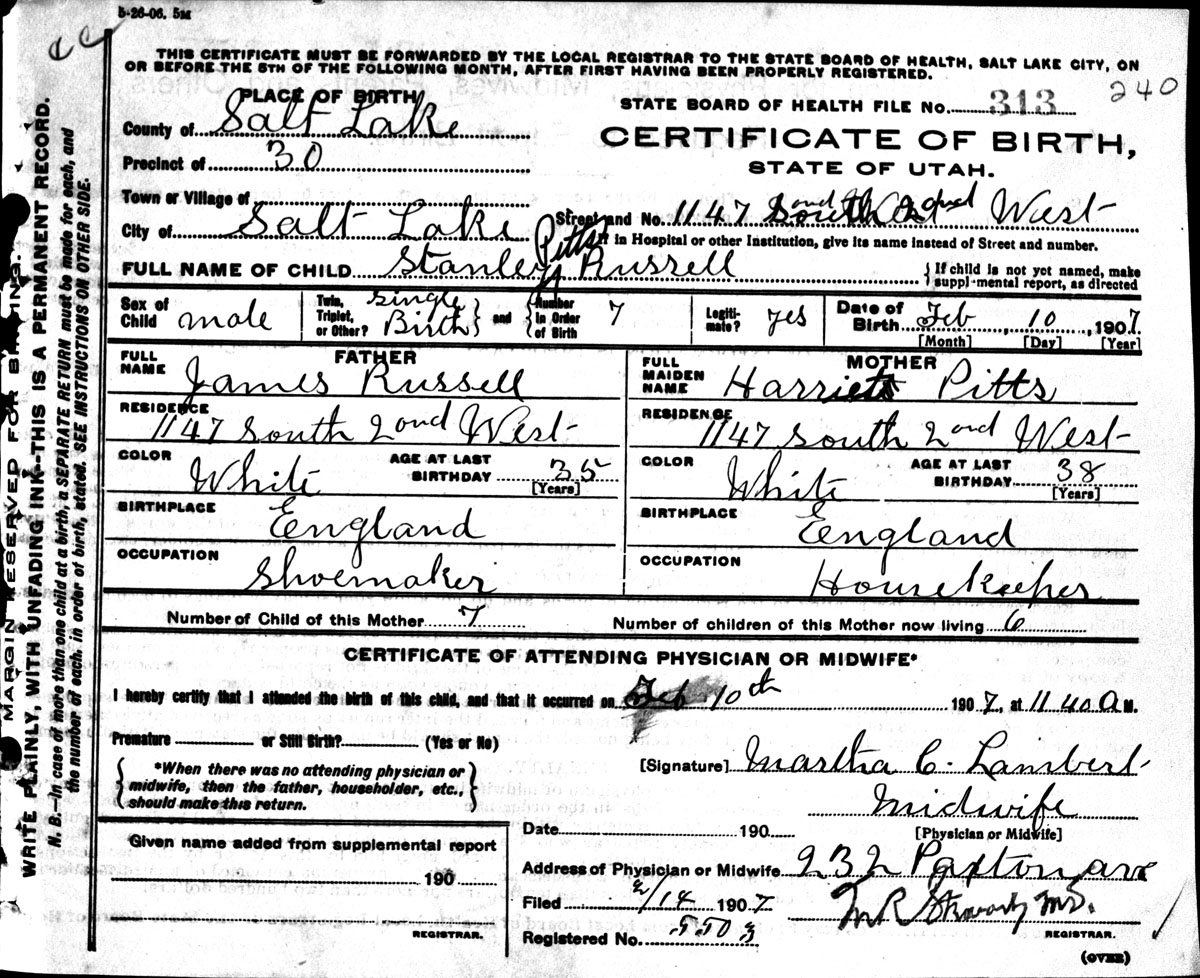 5-26-06. 5M
THIS CERTIFICATE MUST BE FORWARDED BY THE LOCAL REGISTRAR TO THE STATE BOARD OF HEALTH, SALT LAKE CITY, ON
OR BEFORE THE 5TH OF THE FOLLOWING MONTH, AFTER FIRST HAVING BEEN PROPERLY REGISTERED.
240
PLACE OF BIRTH
STATE BOARD OF HEALTH FILE No. 313
County of Salt Lake
CERTIFICATE OF BIRTH,
Precinct of 30
STATE OF UTAH.
Town or Village of
Street and No. 1147 South 2nd West
City of Salt Lake
If in Hospital or other Institution, give its name instead of Street and number.
Pitts
FULL NAME OF CHILD Stanley Russell
If child is not yet named, make
supplemental report, as directed
Sex of Child male
Twin, Triplet, or Other? Single Birth and Number in Order of Birth 7
Legiti-mate? yes
Date of Birth Feb 10, 1907
[Month] [Day] [Year]
FATHER
MOTHER
FULL NAME James Russell
FULL MAIDEN NAME Harriet Pitts
RESIDENCE 1147 South 2nd West
RESIDENCE 1147 South 2nd West
COLOR White AGE AT LAST BIRTHDAY 35 [Years]
COLOR White AGE AT LAST BIRTHDAY 38 [Years]
BIRTHPLACE England
BIRTHPLACE England
OCCUPATION Shoemaker
OCCUPATION Housekeeper
Number of Child of this Mother 7 Number of children of this Mother now living 6
CERTIFICATE OF ATTENDING PHYSICIAN OR MIDWIFE*
I hereby certify that I attended the birth of this child, and that it occurred on Feb 10th 1907, at 11 40 A M.
Premature or Still Birth? (Yes or No)
*When there was no attending physician or
midwife, then the father, householder, etc.,
should make this return.
[Signature] Martha C. Lambert
Midwife
[Physician or Midwife]
Date 190
Given name added from supplemental report
190
REGISTRAR.
Address of Physician or Midwife 232 Paxton ave
Filed 2/14 1907
M.D.
REGISTRAR.
Registered No. 550 3
(OVER)
MARGIN RESERVED FOR BINDING.
WRITE PLAINLY, WITH UNFADING INK--THIS IS A PERMANENT RECORD.
N. B.--In case of more than one child at a birth, a SEPARATE RETURN must be made for each, and
the number of each, in order of birth, stated. SEE INSTRUCTIONS ON OTHER SIDE.